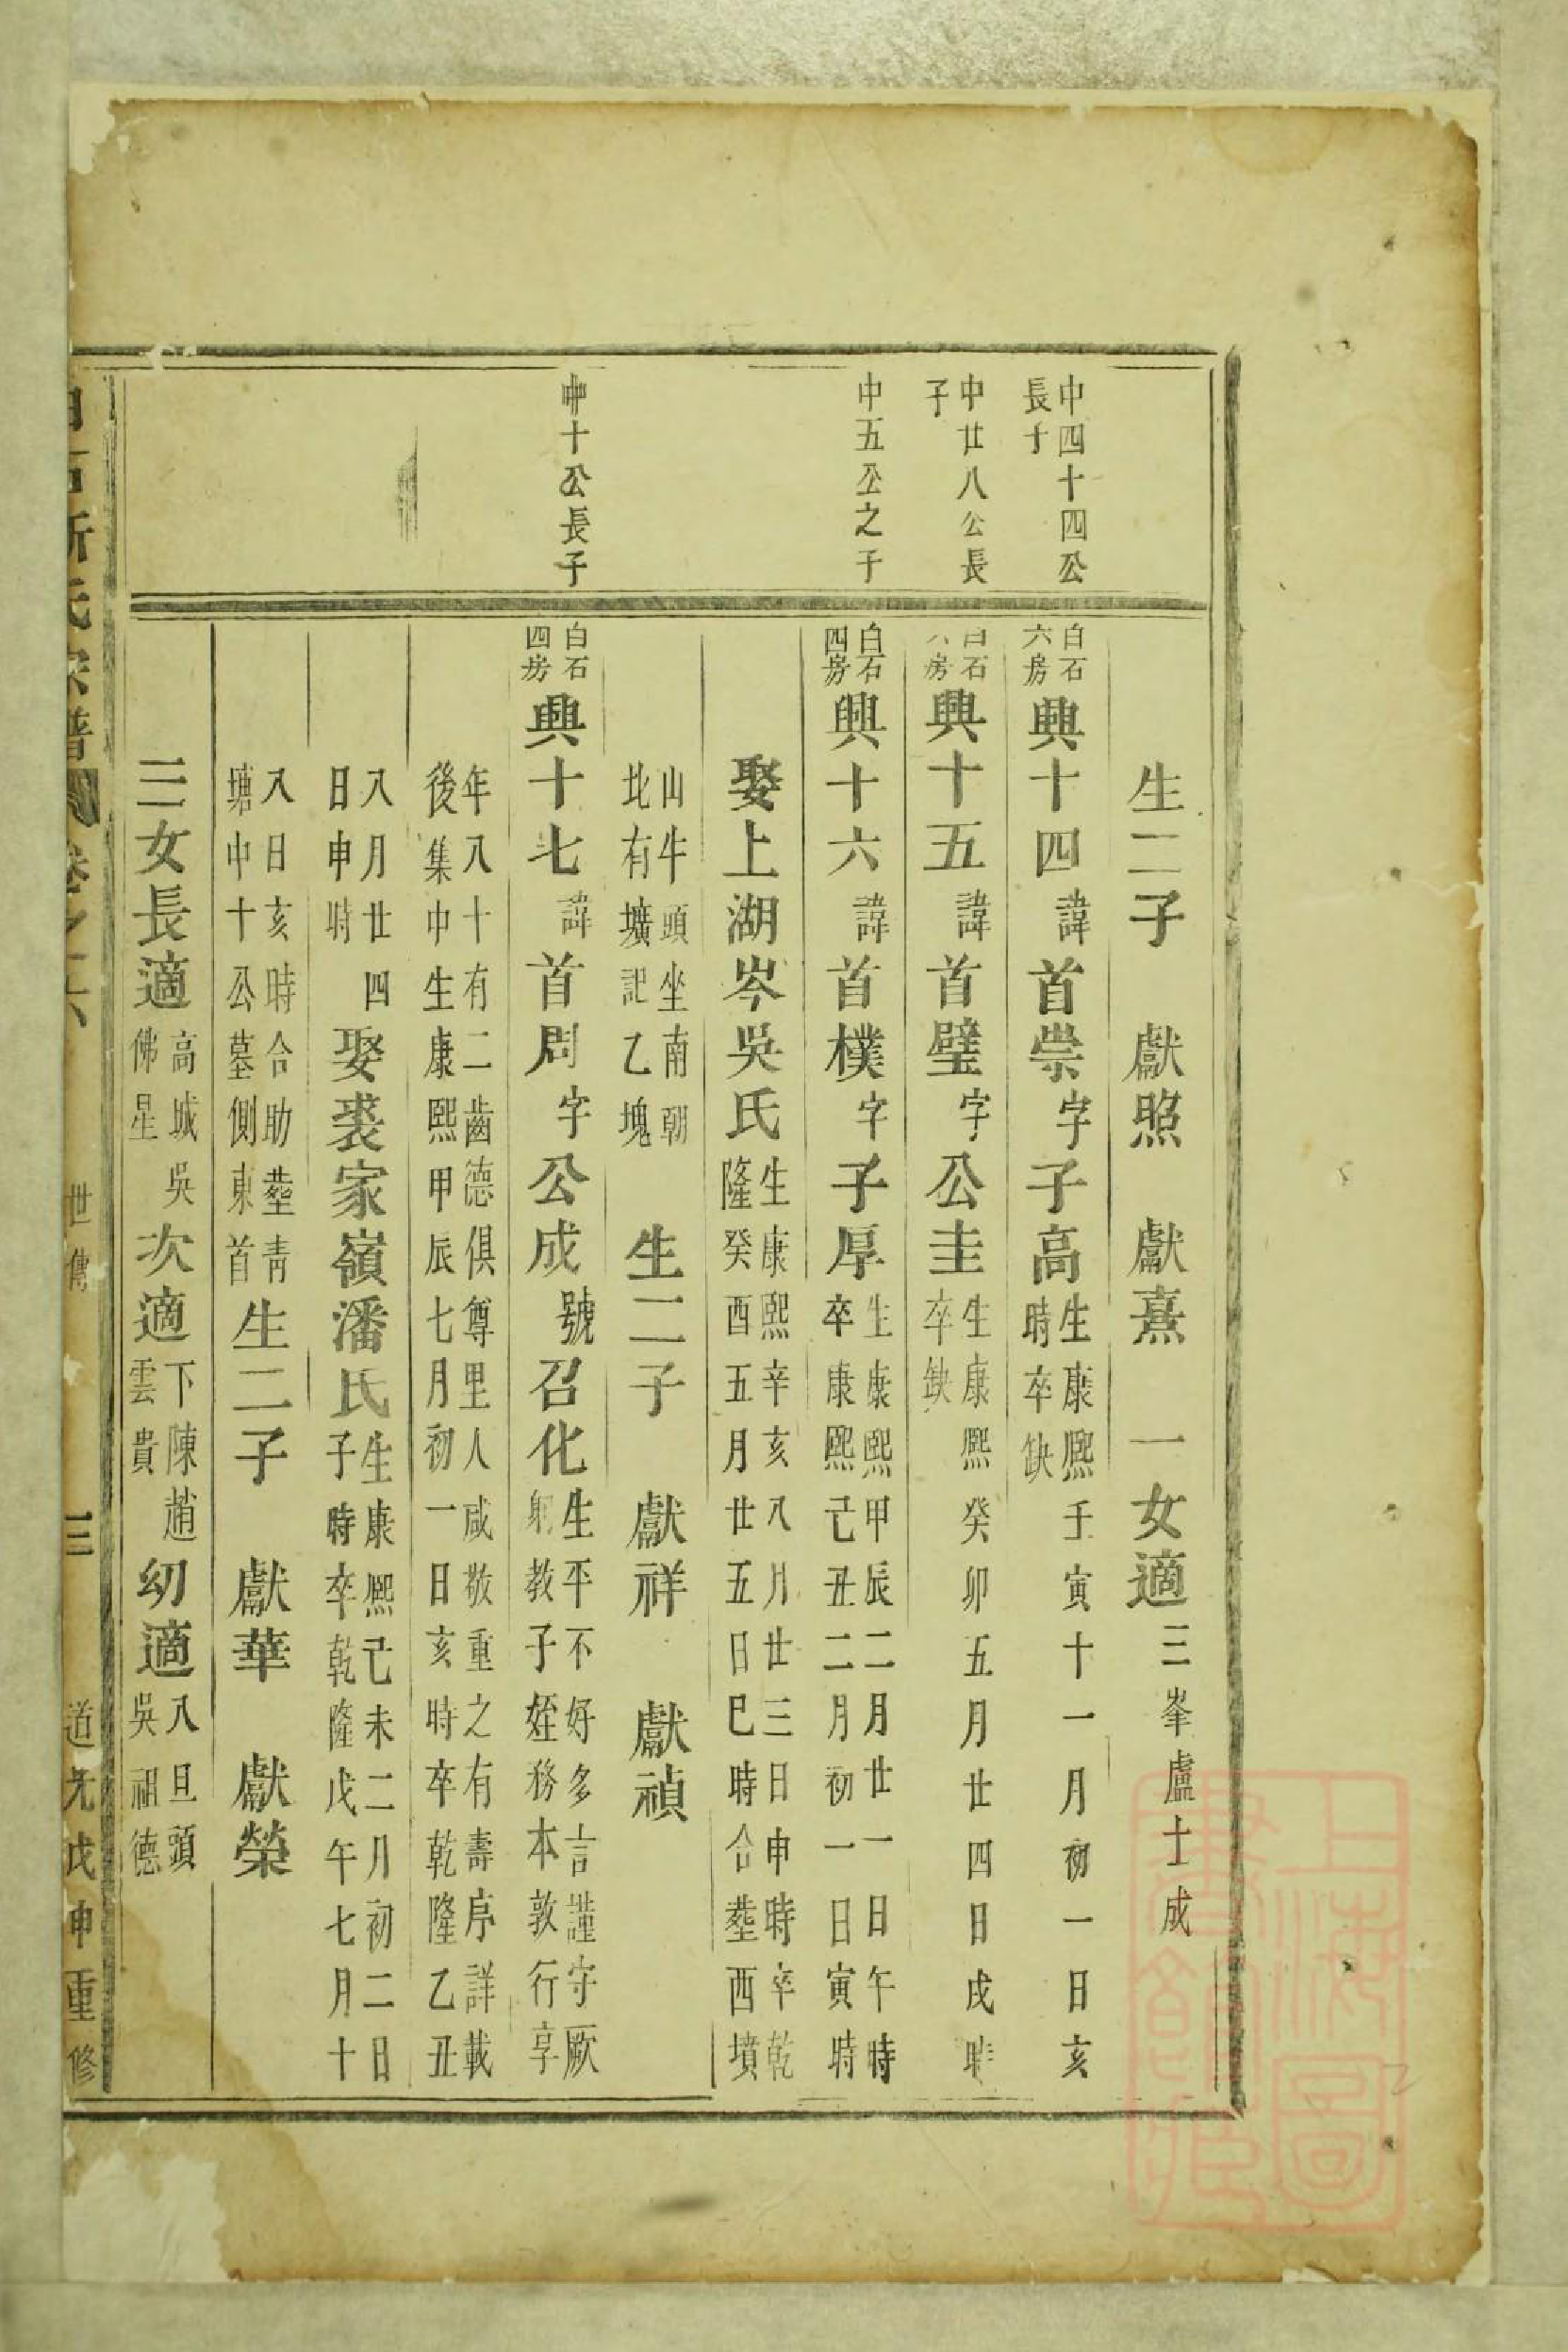 生二子　獻照　獻熹　一女適三峯盧士成
中四十四公
長子
白石
六房
興十四諱首崇字子高
生康熙壬寅十一月初一日亥
時卒缺
中廿八公長
子
白石
六房
興十五諱首璧字公圭
生康熙癸卯五月廿四日戌時
卒缺
中五公之子
白石
四房
興十六諱首樸字子厚
生康熙甲辰二月廿一日午時
卒康熙己丑二月初一日寅時
娶上湖岑吳氏
生康熙辛亥八月廿三日申時卒乾
隆癸酉五月廿五日巳時合塟西墳
山牛頭坐南朝
北有壙記乙塊
生二子　獻祥　獻禎
中十公長子
白石
四房
興十七諱首周字公成號召化
生平不好多言謹守厥
躬教子姪務本敦行享
年八十有二齒德俱尊里人咸敬重之有壽序詳載
後集中生康熙甲辰七月初一日亥時卒乾隆乙丑
八月廿四
日申時
娶裘家嶺潘氏
生康熙己未二月初二日
子時卒乾隆戊午七月十
八日亥時合助塟青
塘中十公墓側東首
生二子　獻華　獻榮
三女長適
高城吳
佛星
次適
下陳趙
雲貴
幼適
八旦頭
吳祖德
斯氏宗譜　卷之六　世傳　三　道光戊申重修
上海圖書館藏